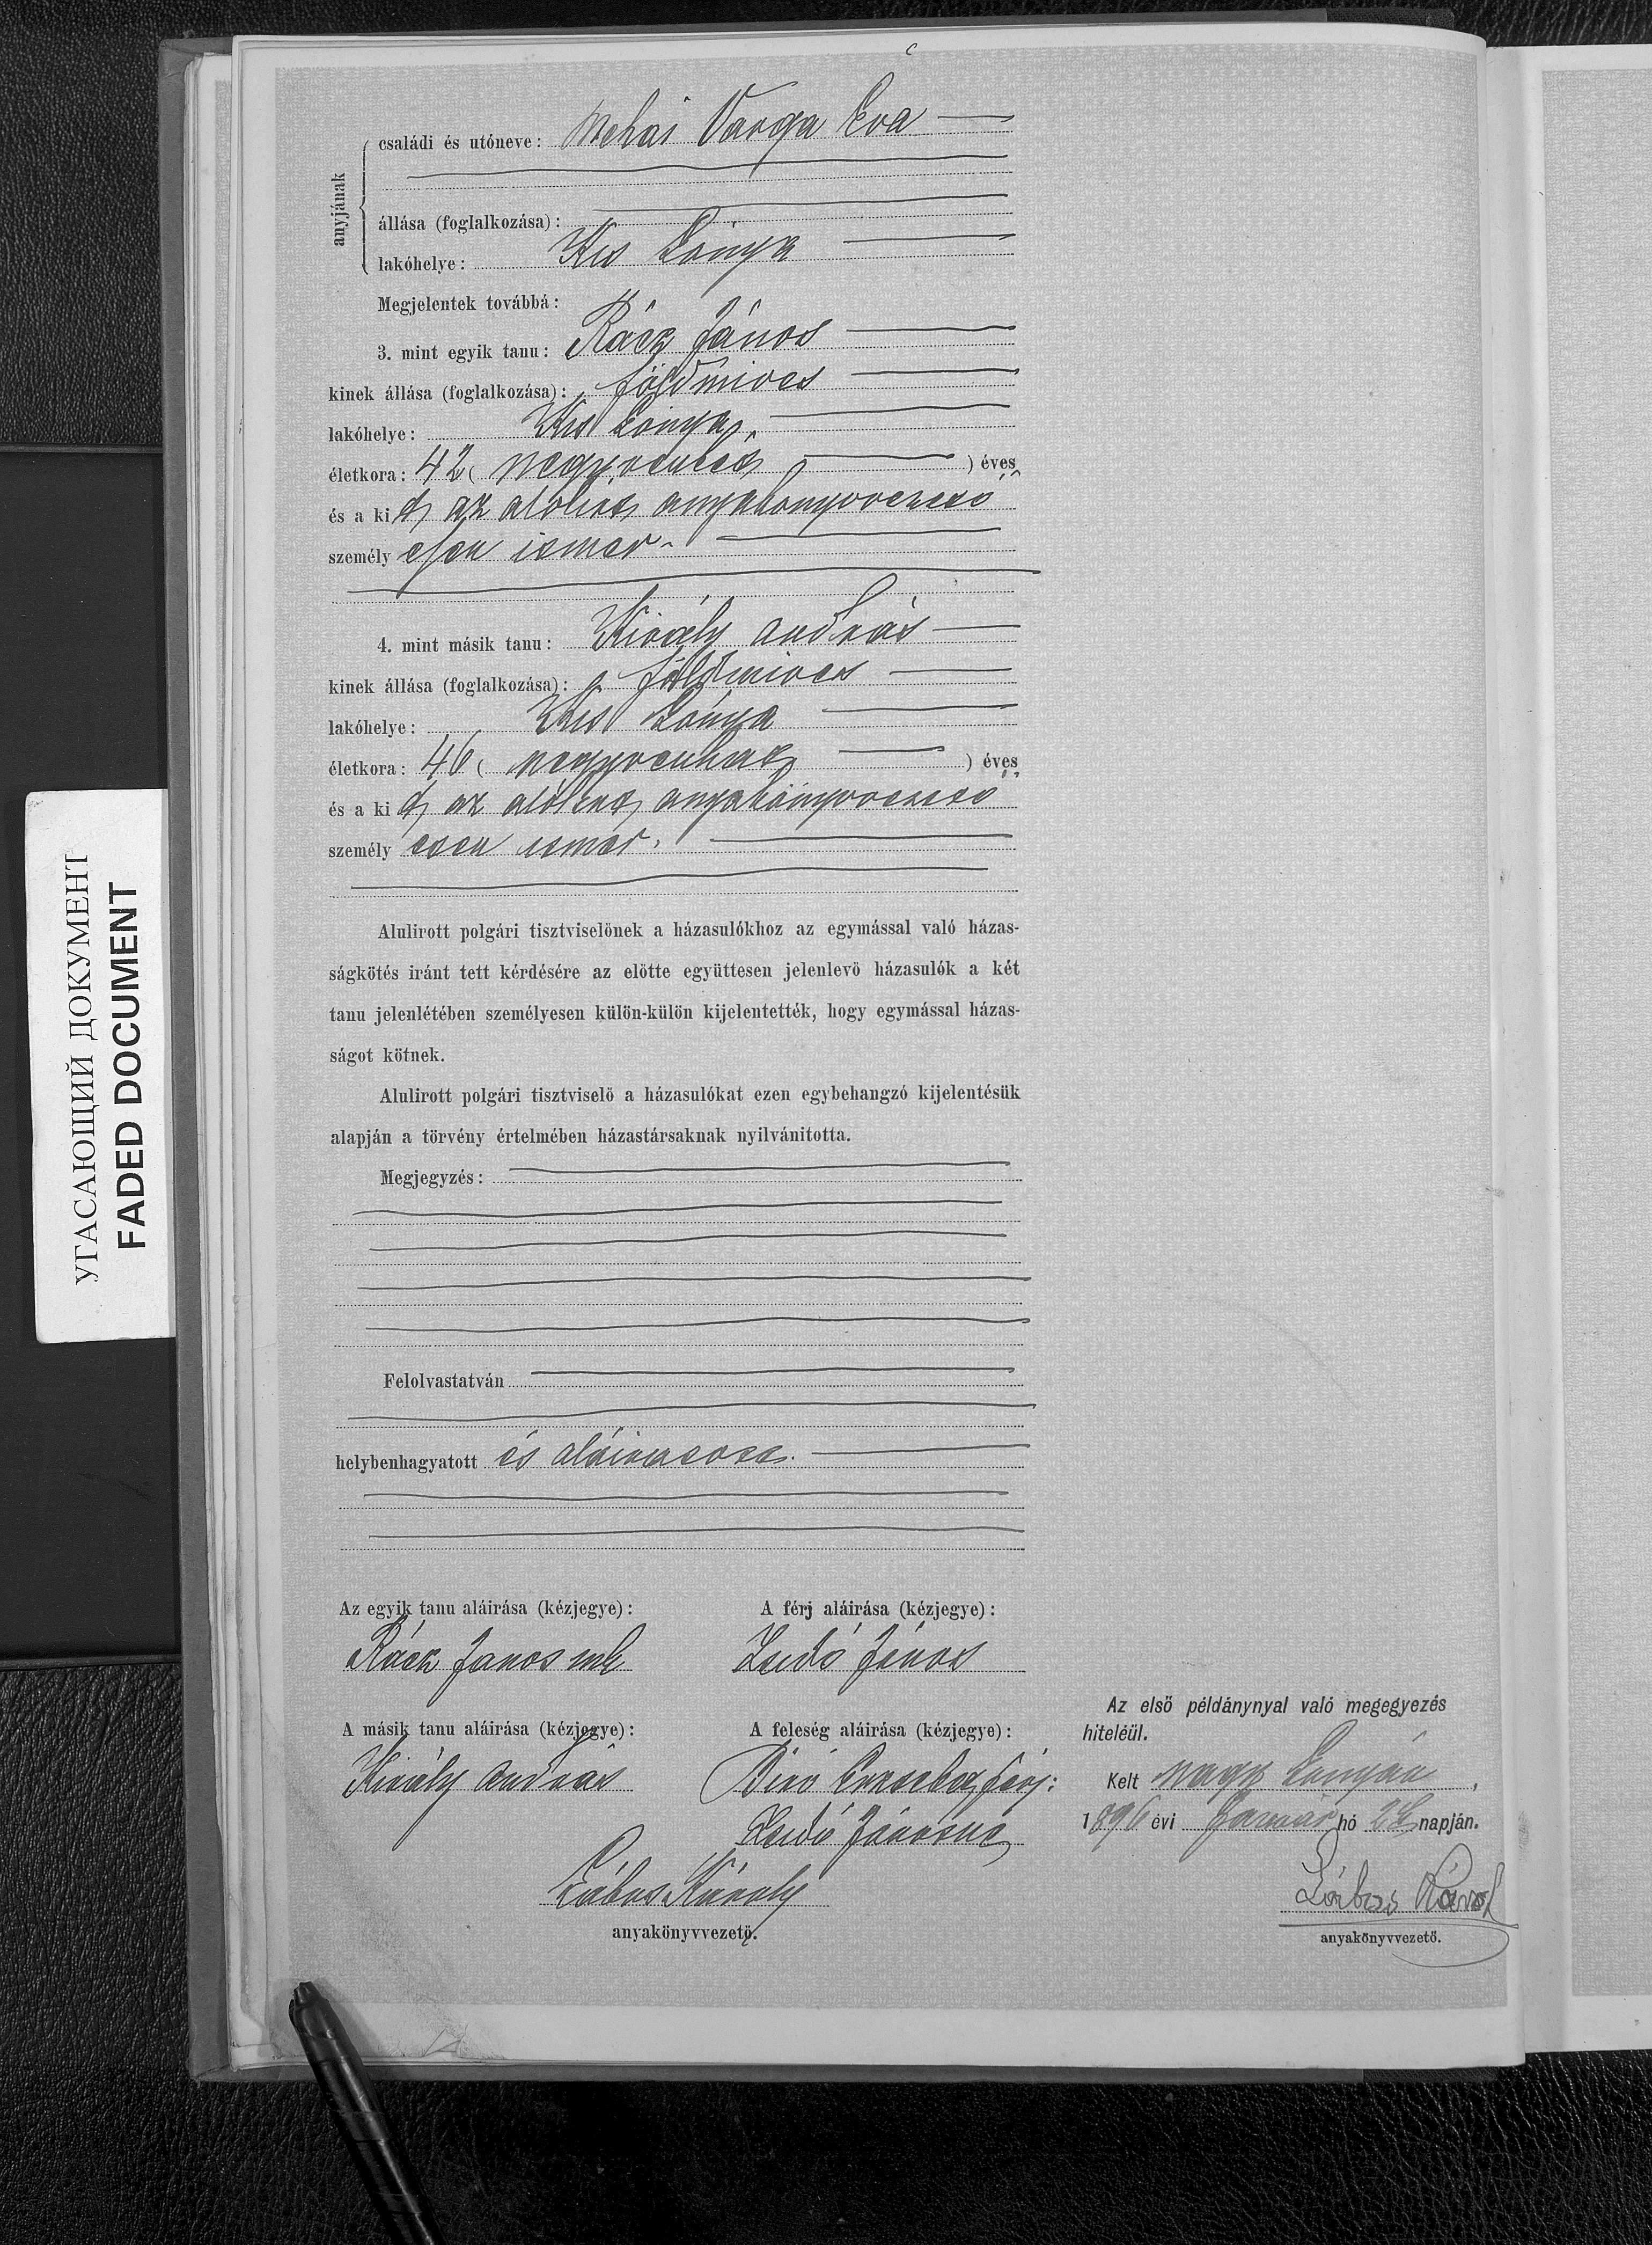 családi és utóneve: Mehai Varga Éva
anyjának
állása (foglalkozása):
lakóhelye: Kis Lónya
Megjelentek továbbá:
3. mint egyik tanu: Rácz János
kinek állása (foglalkozása): földmives
lakóhelye: Kis Lónya
életkora: 42 (negyvenkettő) éves,
és a ki t, az alólirt anyakönyvvezető
személyesen ismer.
4. mint másik tanu: Király András
kinek állása (foglalkozása): földmives
lakóhelye: Kis Lónya
életkora: 46 (negyvenhat) éves,
és a ki t, az alólirt anyakönyvvezető
személyesen ismer.
Alulirott polgári tisztviselönek a házasulókhoz az egymással való házas-
ságkötés iránt tett kérdésére az elötte együttesen jelenlevö házasulók a két
tanu jelenlétében személyesen külön-külön kijelentették, hogy egymással házas-
ságot kötnek.
Alulirott polgári tisztviselö a házasulókat ezen egybehangzó kijelentésük
alapján a törvény értelmében házastársaknak nyilvánitotta.
Megjegyzés:
Felolvastatván
helybenhagyatott és aláiratott.
Az egyik tanu aláirása (kézjegye): A férj aláirása (kézjegye):
Rácz János János
A másik tanu aláirása (kézjegye): A feleség aláirása (kézjegye):
Király András Biró Erzsébet férj:
Jánosné
Lábas Károly
anyakönyvvezető.
Az első példánynyal való megegyezés
hiteléül.
Kelt Nagy Lónyán,
1896 évi Január hó napján.
Lábas Károly
anyakönyvvezető.
УГАСАЮЩИЙ ДОКУМЕНТ
FADED DOCUMENT